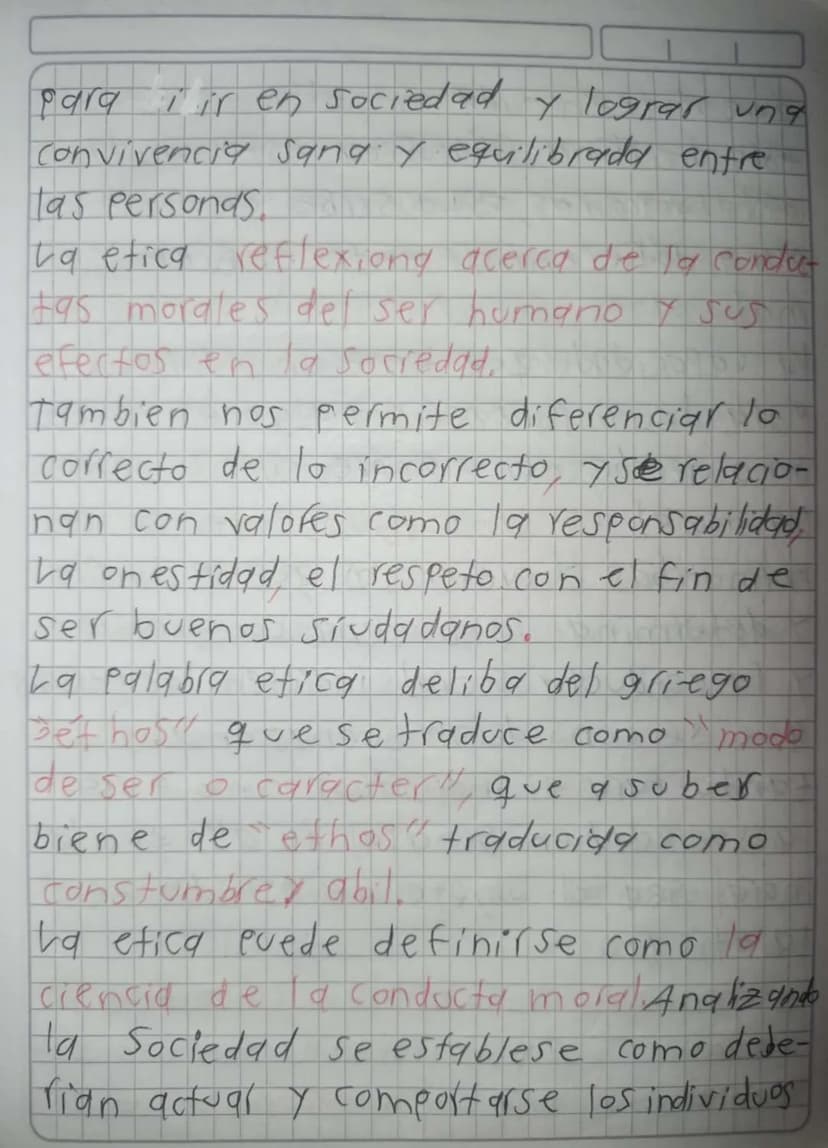 para i ir en sociedad y lograr una
convivencia sana y equilibrada entre
las personas.
La etica reflexiona acerca de la conduc-
tas morales del ser humano y sus
efectos en la sociedad.
Tambien nos permite diferenciar lo
correcto de lo incorrecto, y se relacio-
nan con valores como la responsabilidad,
La onestidad, el respeto con el fin de
ser buenos siudadanos.
La palabra etica deliba del griego
"ethos" que se traduce como "modo
de ser o caracter", que a su bes
biene de "ethos" traducida como
constumbre y abil.
La etica puede definirse como la
ciencia de la conducta moral. Analizando
la sociedad se establese como debe-
rian actuar y comportarse los individuos